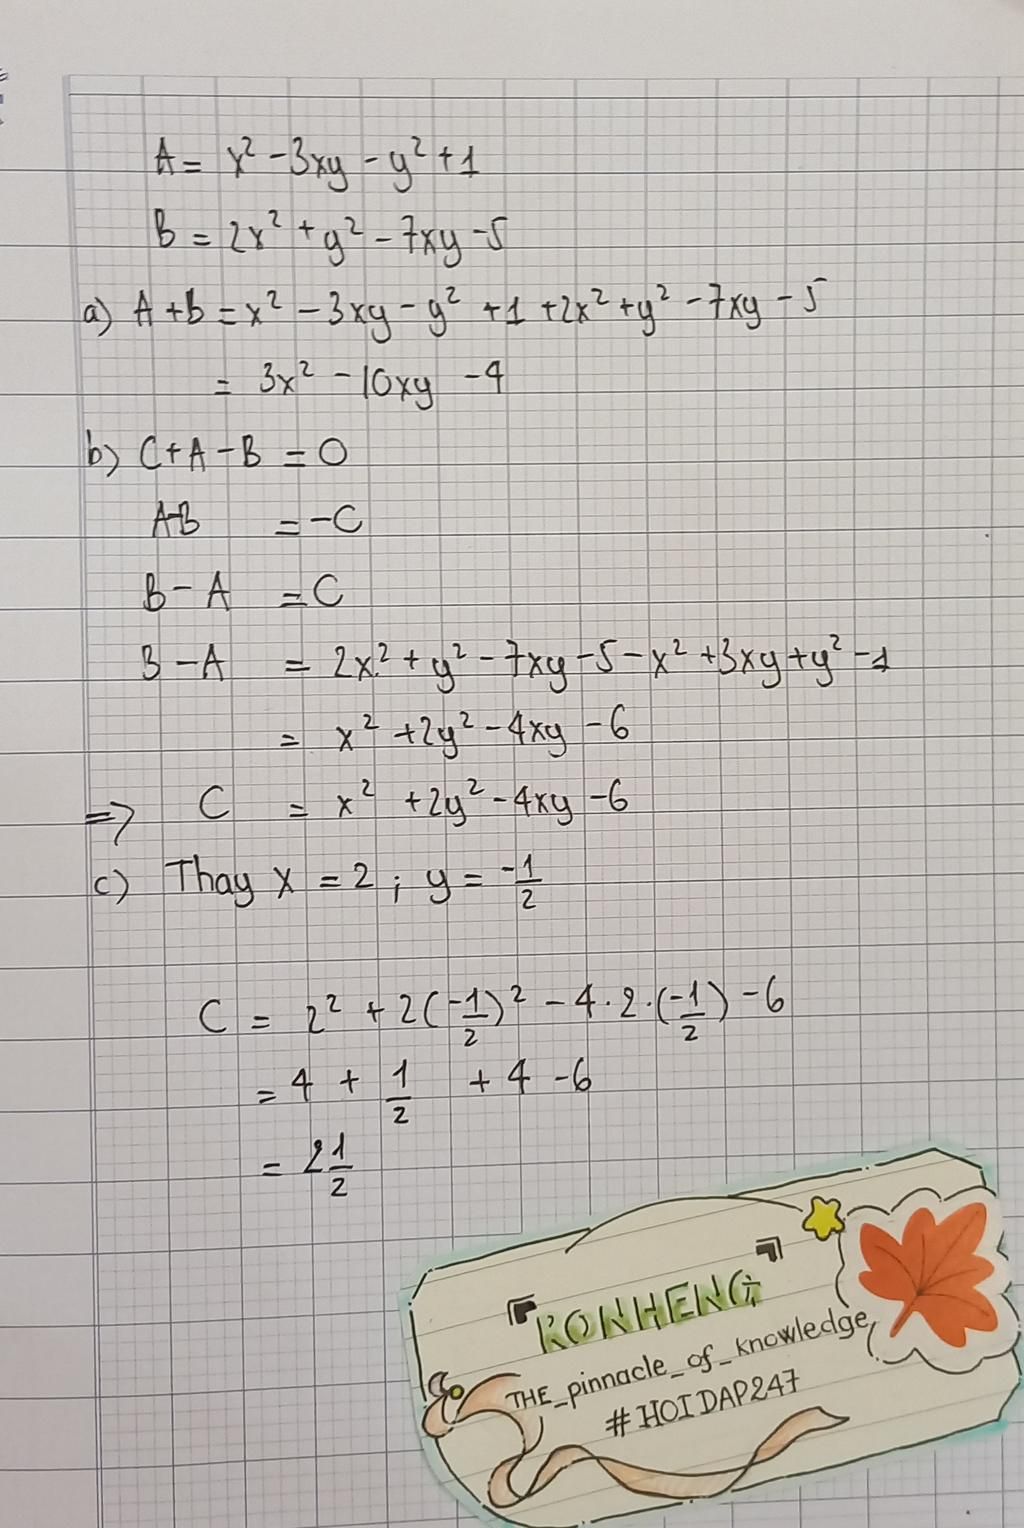 A = x² - 3xy - y² + 1
B = 2x² + y² - 7xy - 5
a) A + b = x² - 3xy - y² + 1 + 2x² + y² - 7xy - 5
= 3x² - 10xy - 4
b) C + A - B = 0
A-B = -C
B - A = C
B - A = 2x² + y² - 7xy - 5 - x² + 3xy + y² - 1
= x² + 2y² - 4xy - 6
=> C = x² + 2y² - 4xy - 6
c) Thay x = 2 ; y = -1/2
C = 2² + 2(-1/2)² - 4 . 2 . (-1/2) - 6
= 4 + 1/2 + 4 - 6
= 2 1/2
『RONHENG』
THE_pinnacle_of_knowledge
#HOIDAP247